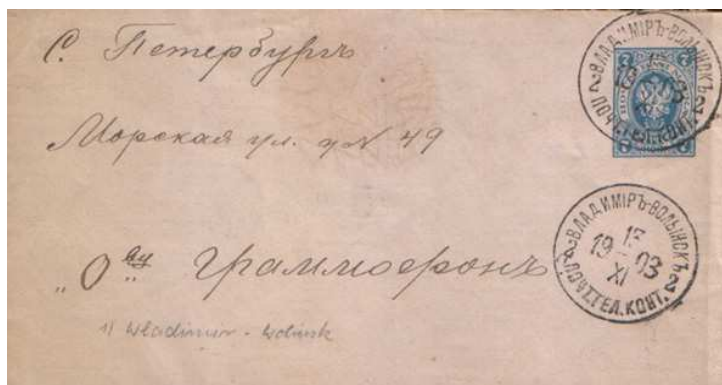 С. Петербургъ
Морская ул. д N 49
„О ву Граммофонъ
1) Wladimir - Wolinsk
7 7
7 7
ВЛАДИМІРЪ-ВОЛЫНСК.
19 03
XI
2 ПОЧТ.ТЕЛ.КОНТ. 2
ВЛАДИМІРЪ-ВОЛЫНСК.
13
19 - 03
XI
2 ПОЧТ.ТЕЛ.КОНТ. 2